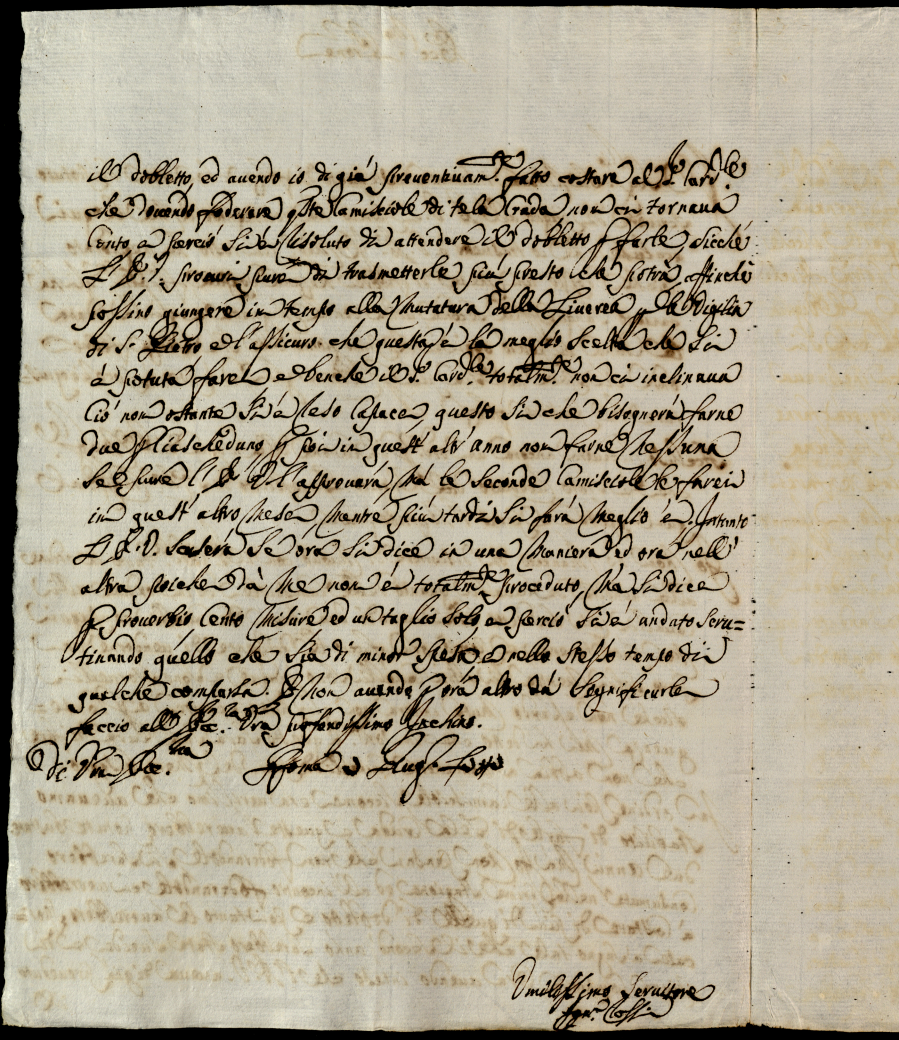 il dobletto, ed auendo io di già preuentiuam.te fatto costare al S.r Card.le
che douendo foderare q.ste Camisciole di tela Crada non ci tornaua
Conto, e perciò si è risoluto di attendere il dobletto p farle, sicché
l'E. V. procuri pure di trasmetterle più presto che potrà, affinché
possino giungere in tempo alla Mutatura della Liurea p la Vigilia
di S. Pietro e l'assicuro che questa è la meglio scelta che si
è potuta fare e benche il S.r Card.le totalm.te non ci inclinaua
Ciò non ostante si è reso Capace, questo si che bisognerà farne
due p Ciascheduno p poi in quest'altr'anno non farne Nessuna
se pure l'E. V. l'approuarà, Ma le seconde Camisciole le farei
in quest'altro Mese Mentre più tardi si farà Meglio è. Intanto
L'E. V. scuserà se ora si dice in una Maniera ed ora nell'
altra poiche da Me non è totalm.te proceduto, Ma si dice
p prouerbio Cento Misure ed un taglio solo, e perciò si è andato scru=
tinando quello che sia di minor spesa, e nello stesso tempo di
qualche comparsa. E Non auendo p ora altro da Significarle
faccio all'Ecc.za Vra profondissimo Inchino.
Di Vra Ecc.za Roma
Umilissimo Seruitore